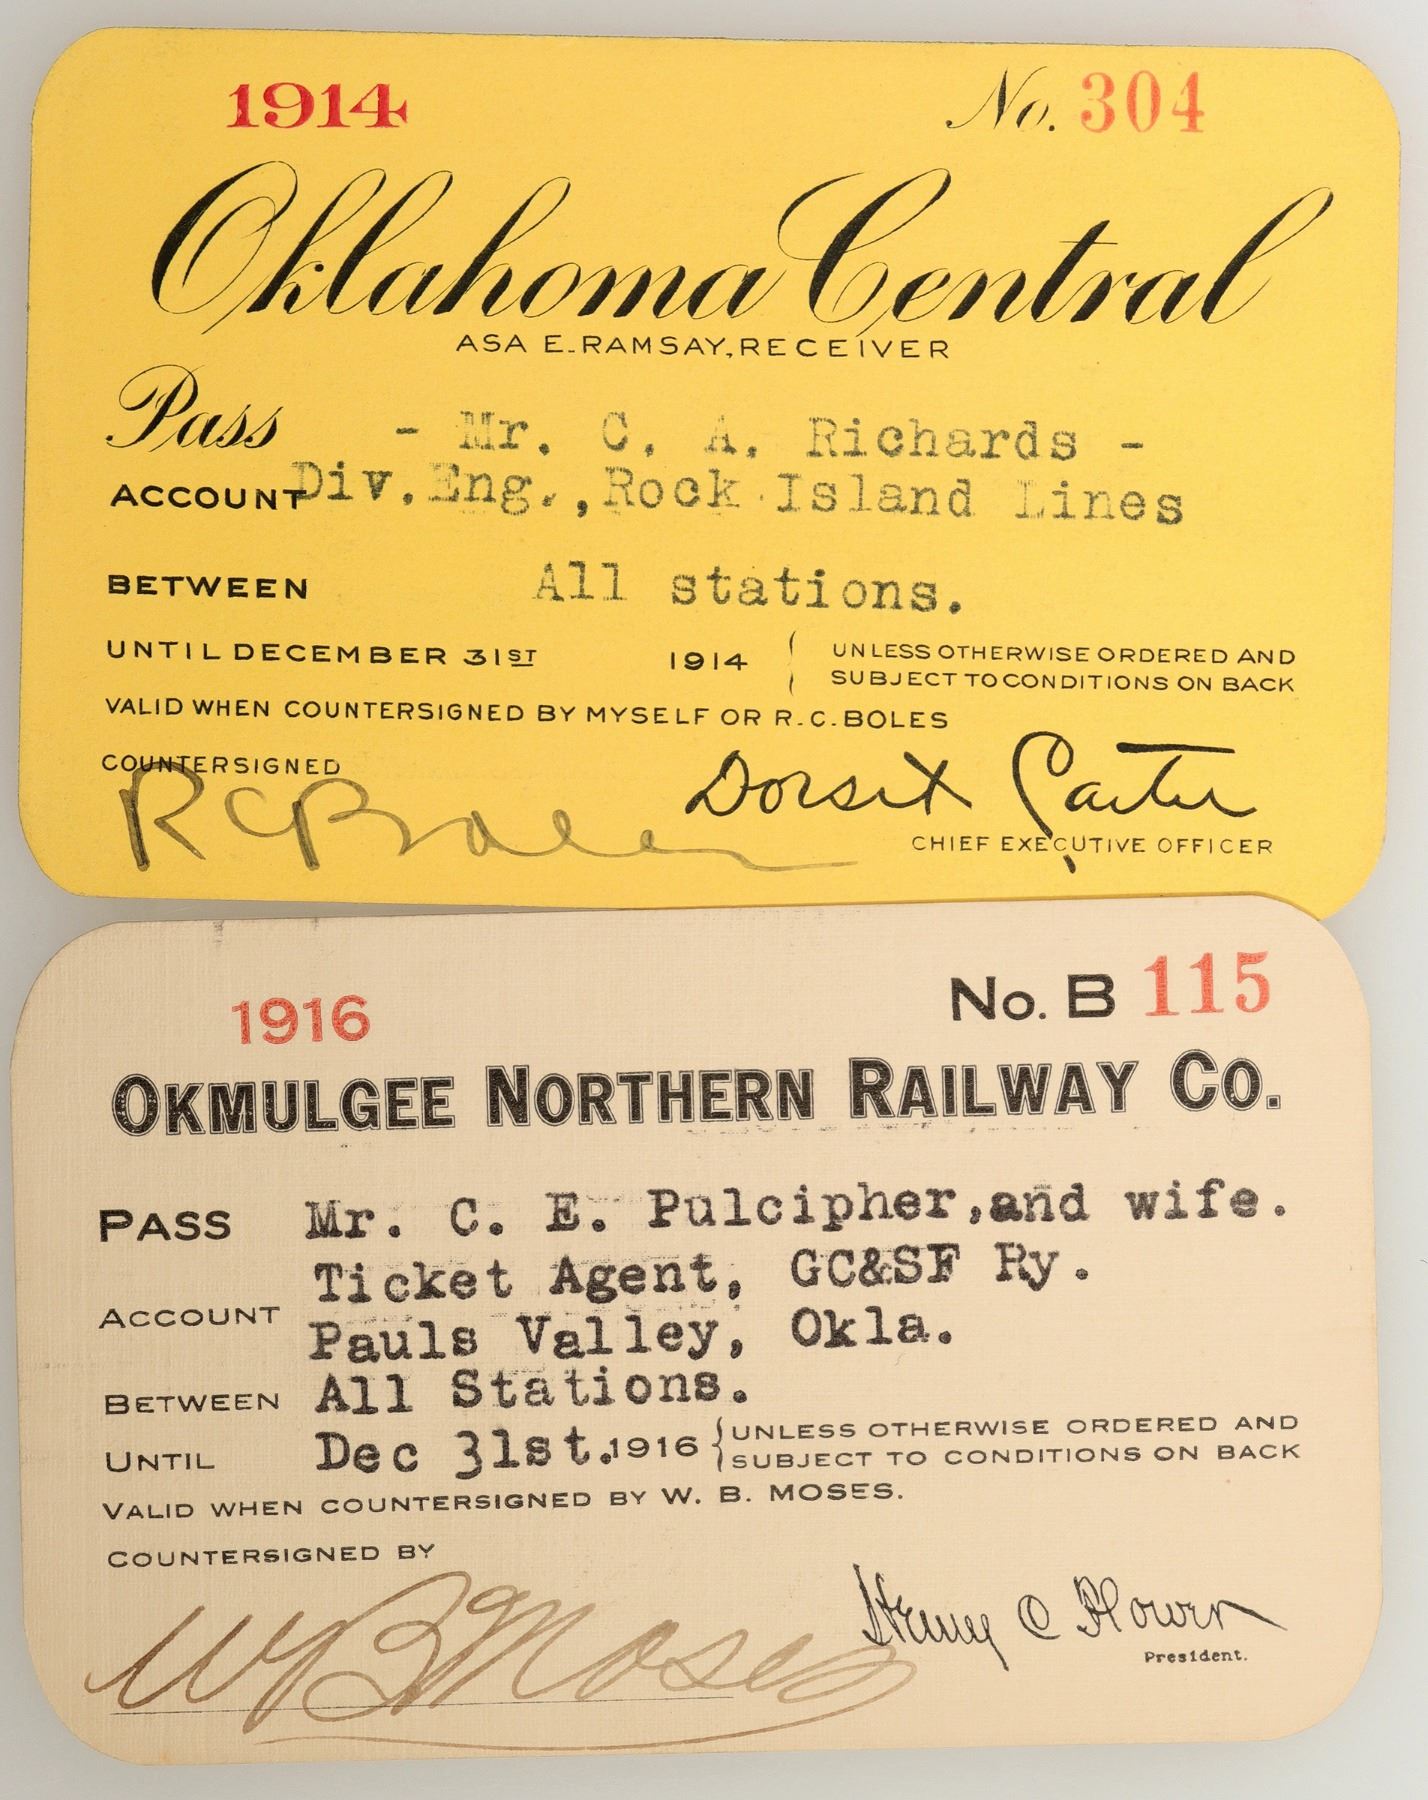 1914 No. 304
Oklahoma Central
ASA E. RAMSAY, RECEIVER
Pass - Mr. C. A. Richards -
ACCOUNT Div. Eng., Rock Island Lines
BETWEEN All stations.
UNTIL DECEMBER 31ST 1914 { UNLESS OTHERWISE ORDERED AND
SUBJECT TO CONDITIONS ON BACK
VALID WHEN COUNTERSIGNED BY MYSELF OR R.C. BOLES
COUNTERSIGNED
R C Boles Dorset Carter
CHIEF EXECUTIVE OFFICER
1916 No. B 115
OKMULGEE NORTHERN RAILWAY CO.
PASS Mr. C. E. Pulcipher, and wife.
Ticket Agent, GC&SF Ry.
ACCOUNT
Pauls Valley, Okla.
BETWEEN All Stations.
UNTIL Dec 31st. 1916 { UNLESS OTHERWISE ORDERED AND
SUBJECT TO CONDITIONS ON BACK
VALID WHEN COUNTERSIGNED BY W. B. MOSES.
COUNTERSIGNED BY
W B Moses Henry C Flower
President.